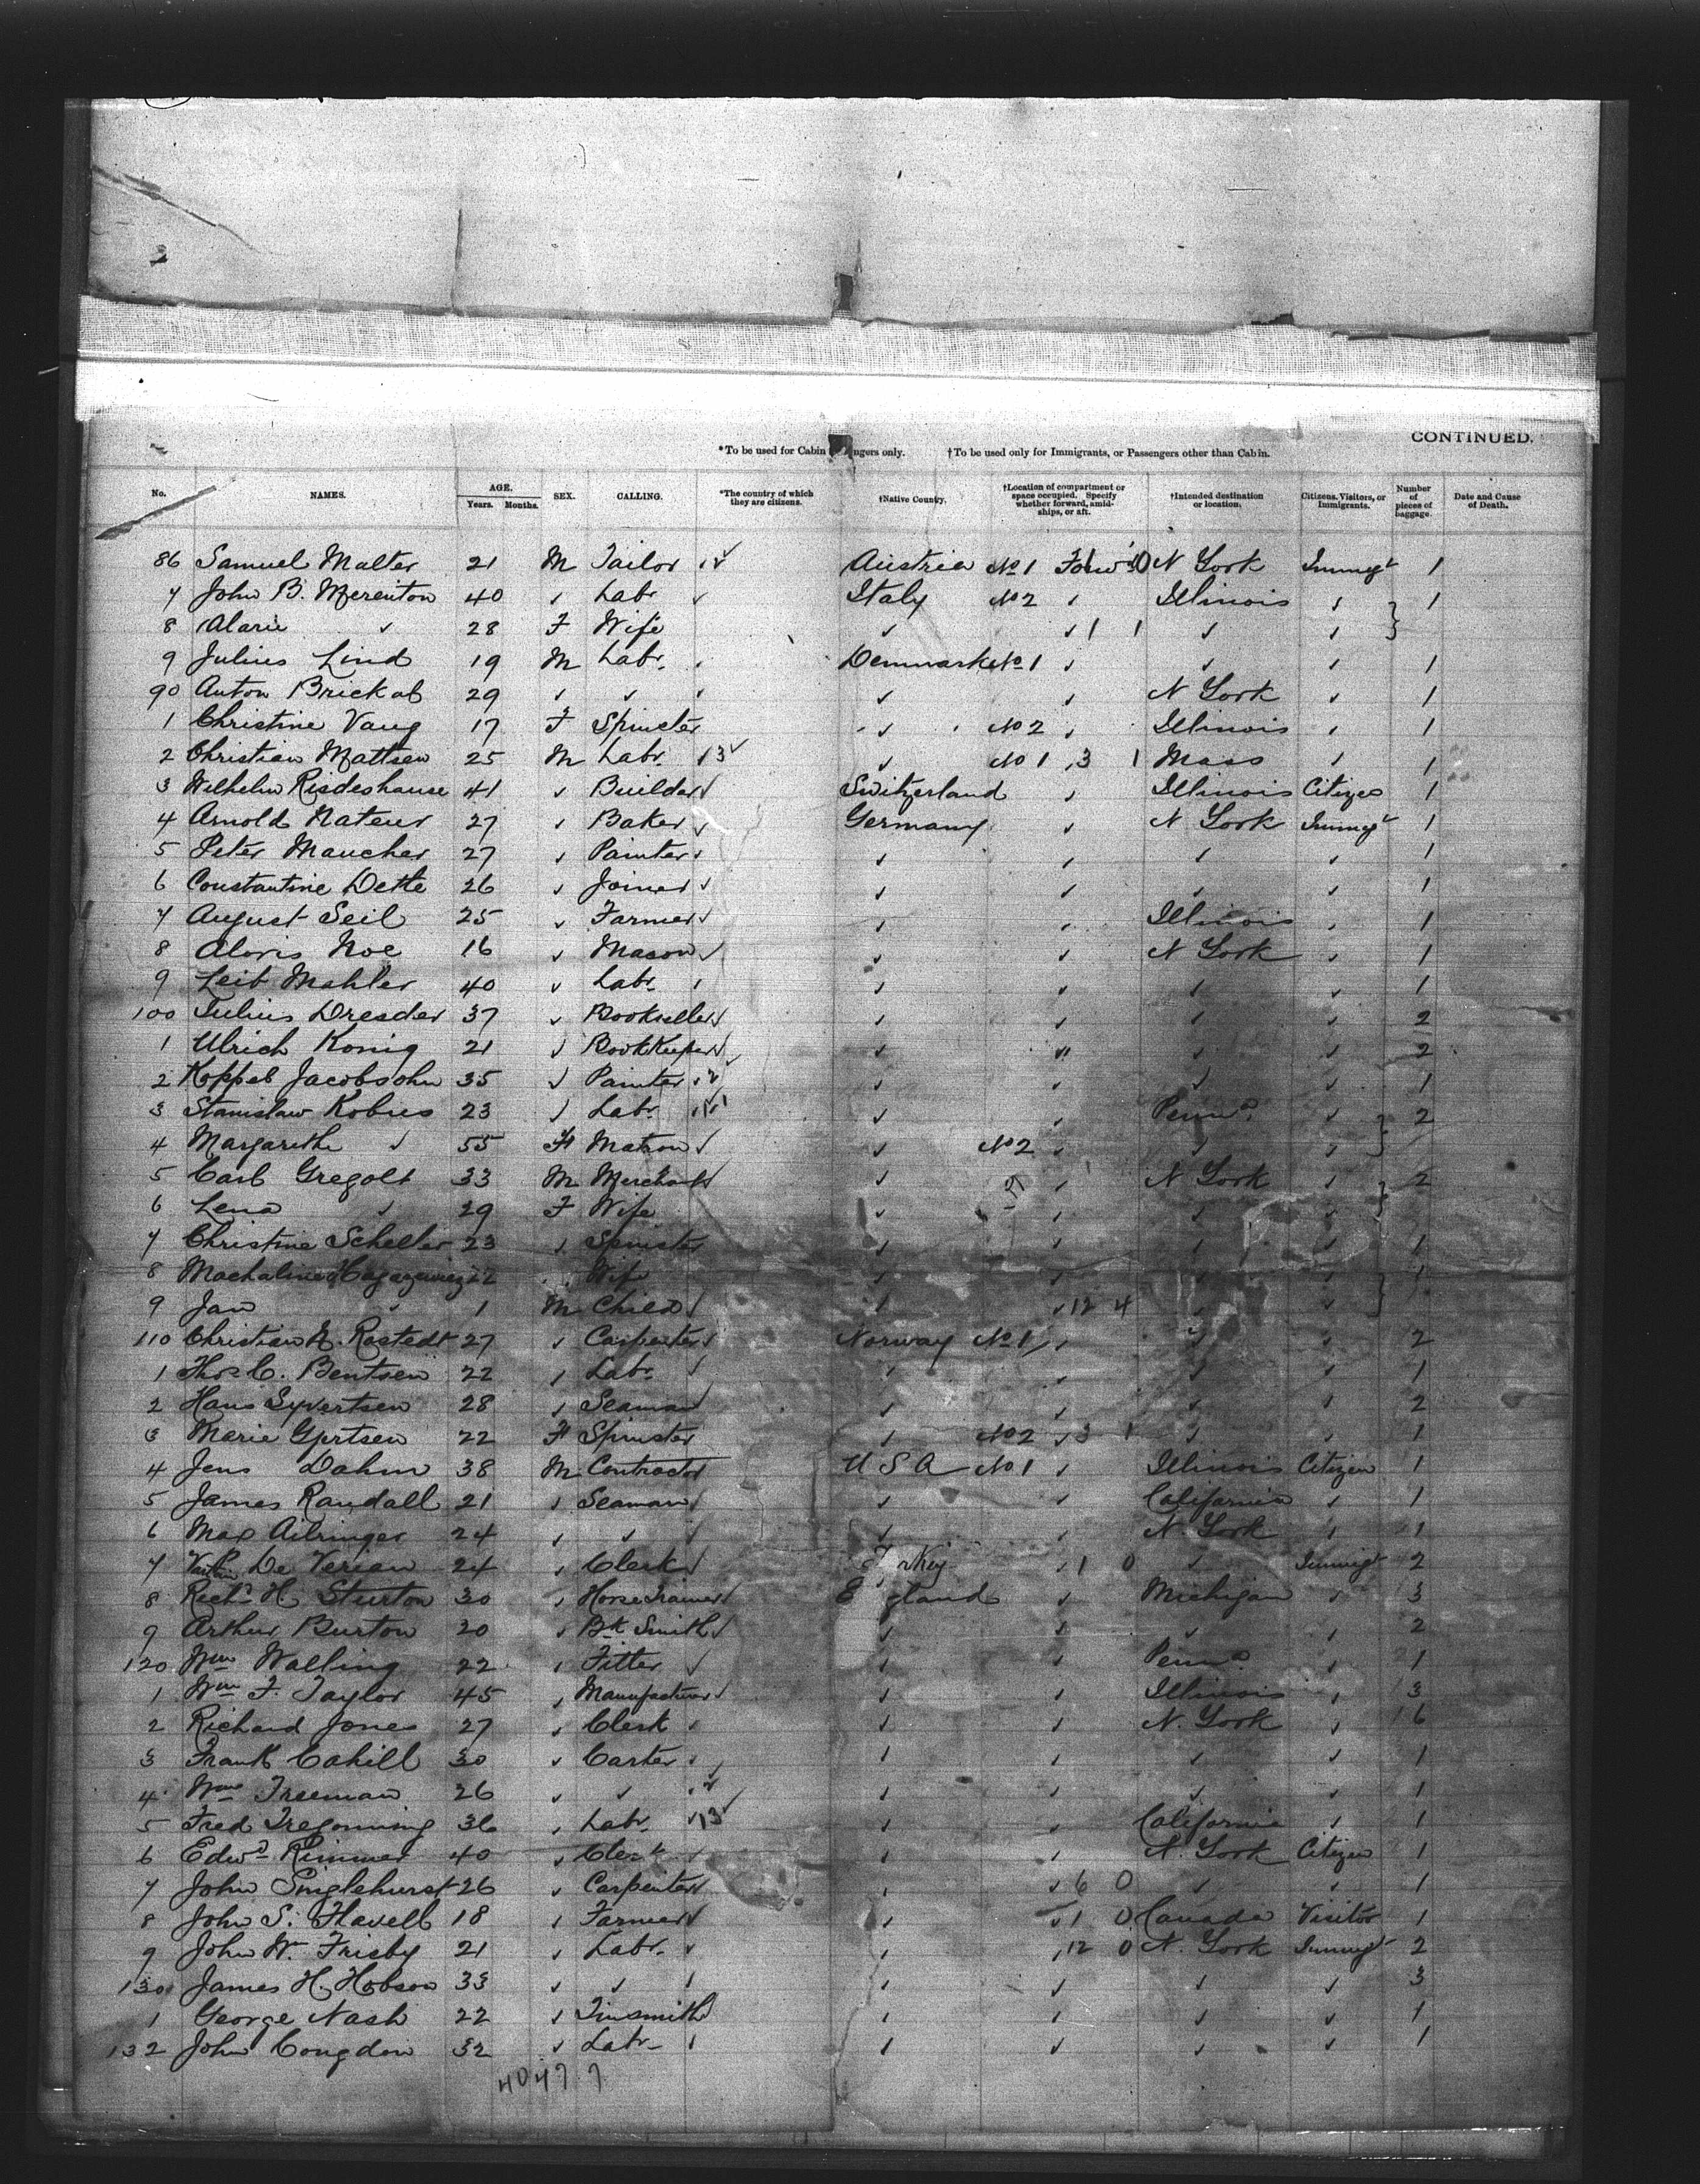 CONTINUED.
*To be used for Cabin ngers only. †To be used only for Immigrants, or Passengers other than Cabin.
No. NAMES. AGE. Years. Months. SEX. CALLING. *The country of which they are citizens. †Native County. †Location of compartment or space occupied. Specify whether forward, amidships, or aft. †Intended destination or location. Citizens, Visitors, or Immigrants. Number of pieces of baggage. Date and Cause of Death.
86 Samuel Malter 21 M Tailor Austria No 1 Forwd N York Immigt 1
7 John B. Merenton 40 " Labr Italy No 2 " Illinois " 1
8 Marie " 28 F Wife " " 1 1 " "
9 Julius Lind 19 M Labr " Denmark No 1 " " " 1
90 Anton Brickab 29 " " " " " N York " 1
1 Christine Vaug 17 F Spinster " No 2 " Illinois " 1
2 Christian Mattsen 25 M Labr 13 " No 1 " 3 1 Mass " 1
3 Wilhelm Risdeshause 41 " Builder " Switzerland " Illinois Citizen 1
4 Arnold Nateur 27 " Baker " Germany " N York Immigt 1
5 Peter Maucher 27 " Painter " " " " " 1
6 Constantine Dette 26 " Joiner " " " " " 1
7 August Seil 25 " Farmer " " " Illinois " 1
8 Aloris Noe 16 " Mason " " " N York " 1
9 Leib Mahler 40 " Labr " " " " " 1
100 Julius Dresder 37 " Bookseller " " " " " 2
1 Ulrich Konig 21 " BookKeeper " " " " " 2
2 Koppel Jacobsohn 35 " Painter " " " " 1
3 Stanislaw Kobus 23 " Labr " " Penna " 2
4 Margarethe " 55 F Matron " " No 2 " " "
5 Carl Gregolt 33 M Merchant " " " N York " 2
6 Lena " 29 F Wife " " " "
7 Christine Scheller 23 " Spinster " " " " 1
8 Machaline 22 " Wife " " " " 1
9 Jan " 1 M Child " " " 12 4 " "
110 Christian N. Rostedt 27 " Carpenter " Norway No 1 " " " 2
1 Thos C. Bentsen 22 " Labr " " " " " 1
2 Hans Syvertsen 28 " Seaman " " " " " 2
3 Marie Gjertsen 22 F Spinster " No 2 " 3 1 " " 1
4 Jens Dahm 38 M Contractor U S A No 1 " Illinois Citizen 1
5 James Randall 21 " Seaman " " " California " 1
6 Max Ailringer 24 " " " " " N. York " 1
7 De Verian 24 " Clerk " T rkey " 1 0 " Immigt 2
8 Richd H. Sturton 30 " Horse Trainer " E gland " Michigan " 3
9 Arthur Burton 20 " Bk Smith " " " " " 2
120 Wm Walling 22 " Fitter " " " Penna " 1
1 Wm F. Taylor 45 " Manufacturer " " " Illinois " 3
2 Richard Jones 27 " Clerk " " " N. York " 6
3 Frank Cahill 30 " Carter " " " " " 1
4 Wm Freeman 26 " " " " " " 1
5 Fred Tregonning 36 " Labr " 13 " " California " 1
6 Edwd Rimmer 40 " Clerk " " " N. York Citizen 1
7 John Singlehurst 26 " Carpenter " " " 6 0 " " 1
8 John S. Flavell 18 " Farmer " " " 1 0 Canada Visitor 1
9 John Wm Frisby 21 " Labr " " " 12 0 N. York Immigt 2
130 James H. Hobson 33 " " " " " " " 3
1 George Nash 22 " Tinsmith " " " " " 1
132 John Congdon 32 " Labr " " " " " 1